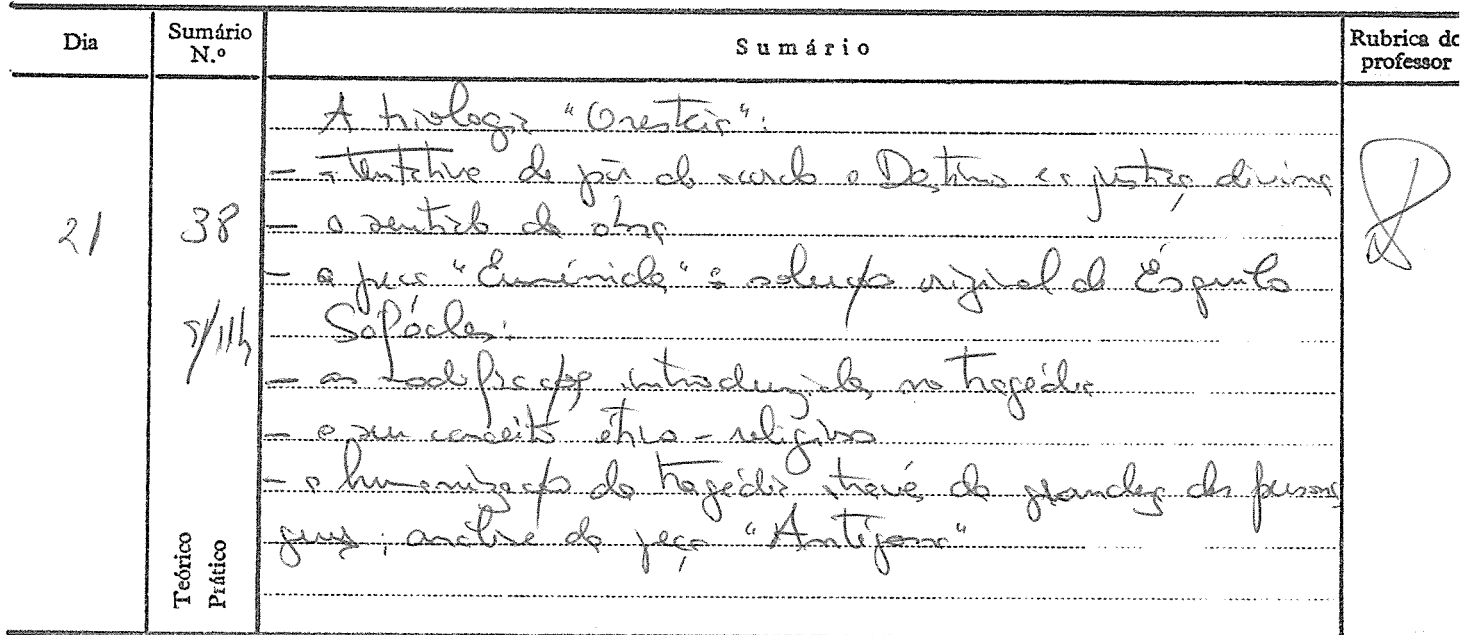 Dia
Sumário N.º
Sumário
Rubrica do professor
21
38
9/11h
Teórico
Prático
A trilogia "Oresteia":
- a tentativa de pôr de acordo o Destino e a justiça divina
- o sentido da obra
- a peça "Euménides" e a solução original de Ésquilo
Sófocles:
- as modificações introduzidas na tragédia
- o seu conceito ético-religioso
- a humanização da tragédia através da grandeza das persona
gens; análise da peça "Antígona"